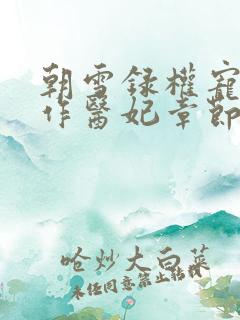 朝雪錄權寵
作醫妃章節
哈炒大白菜
未经同意禁止转载